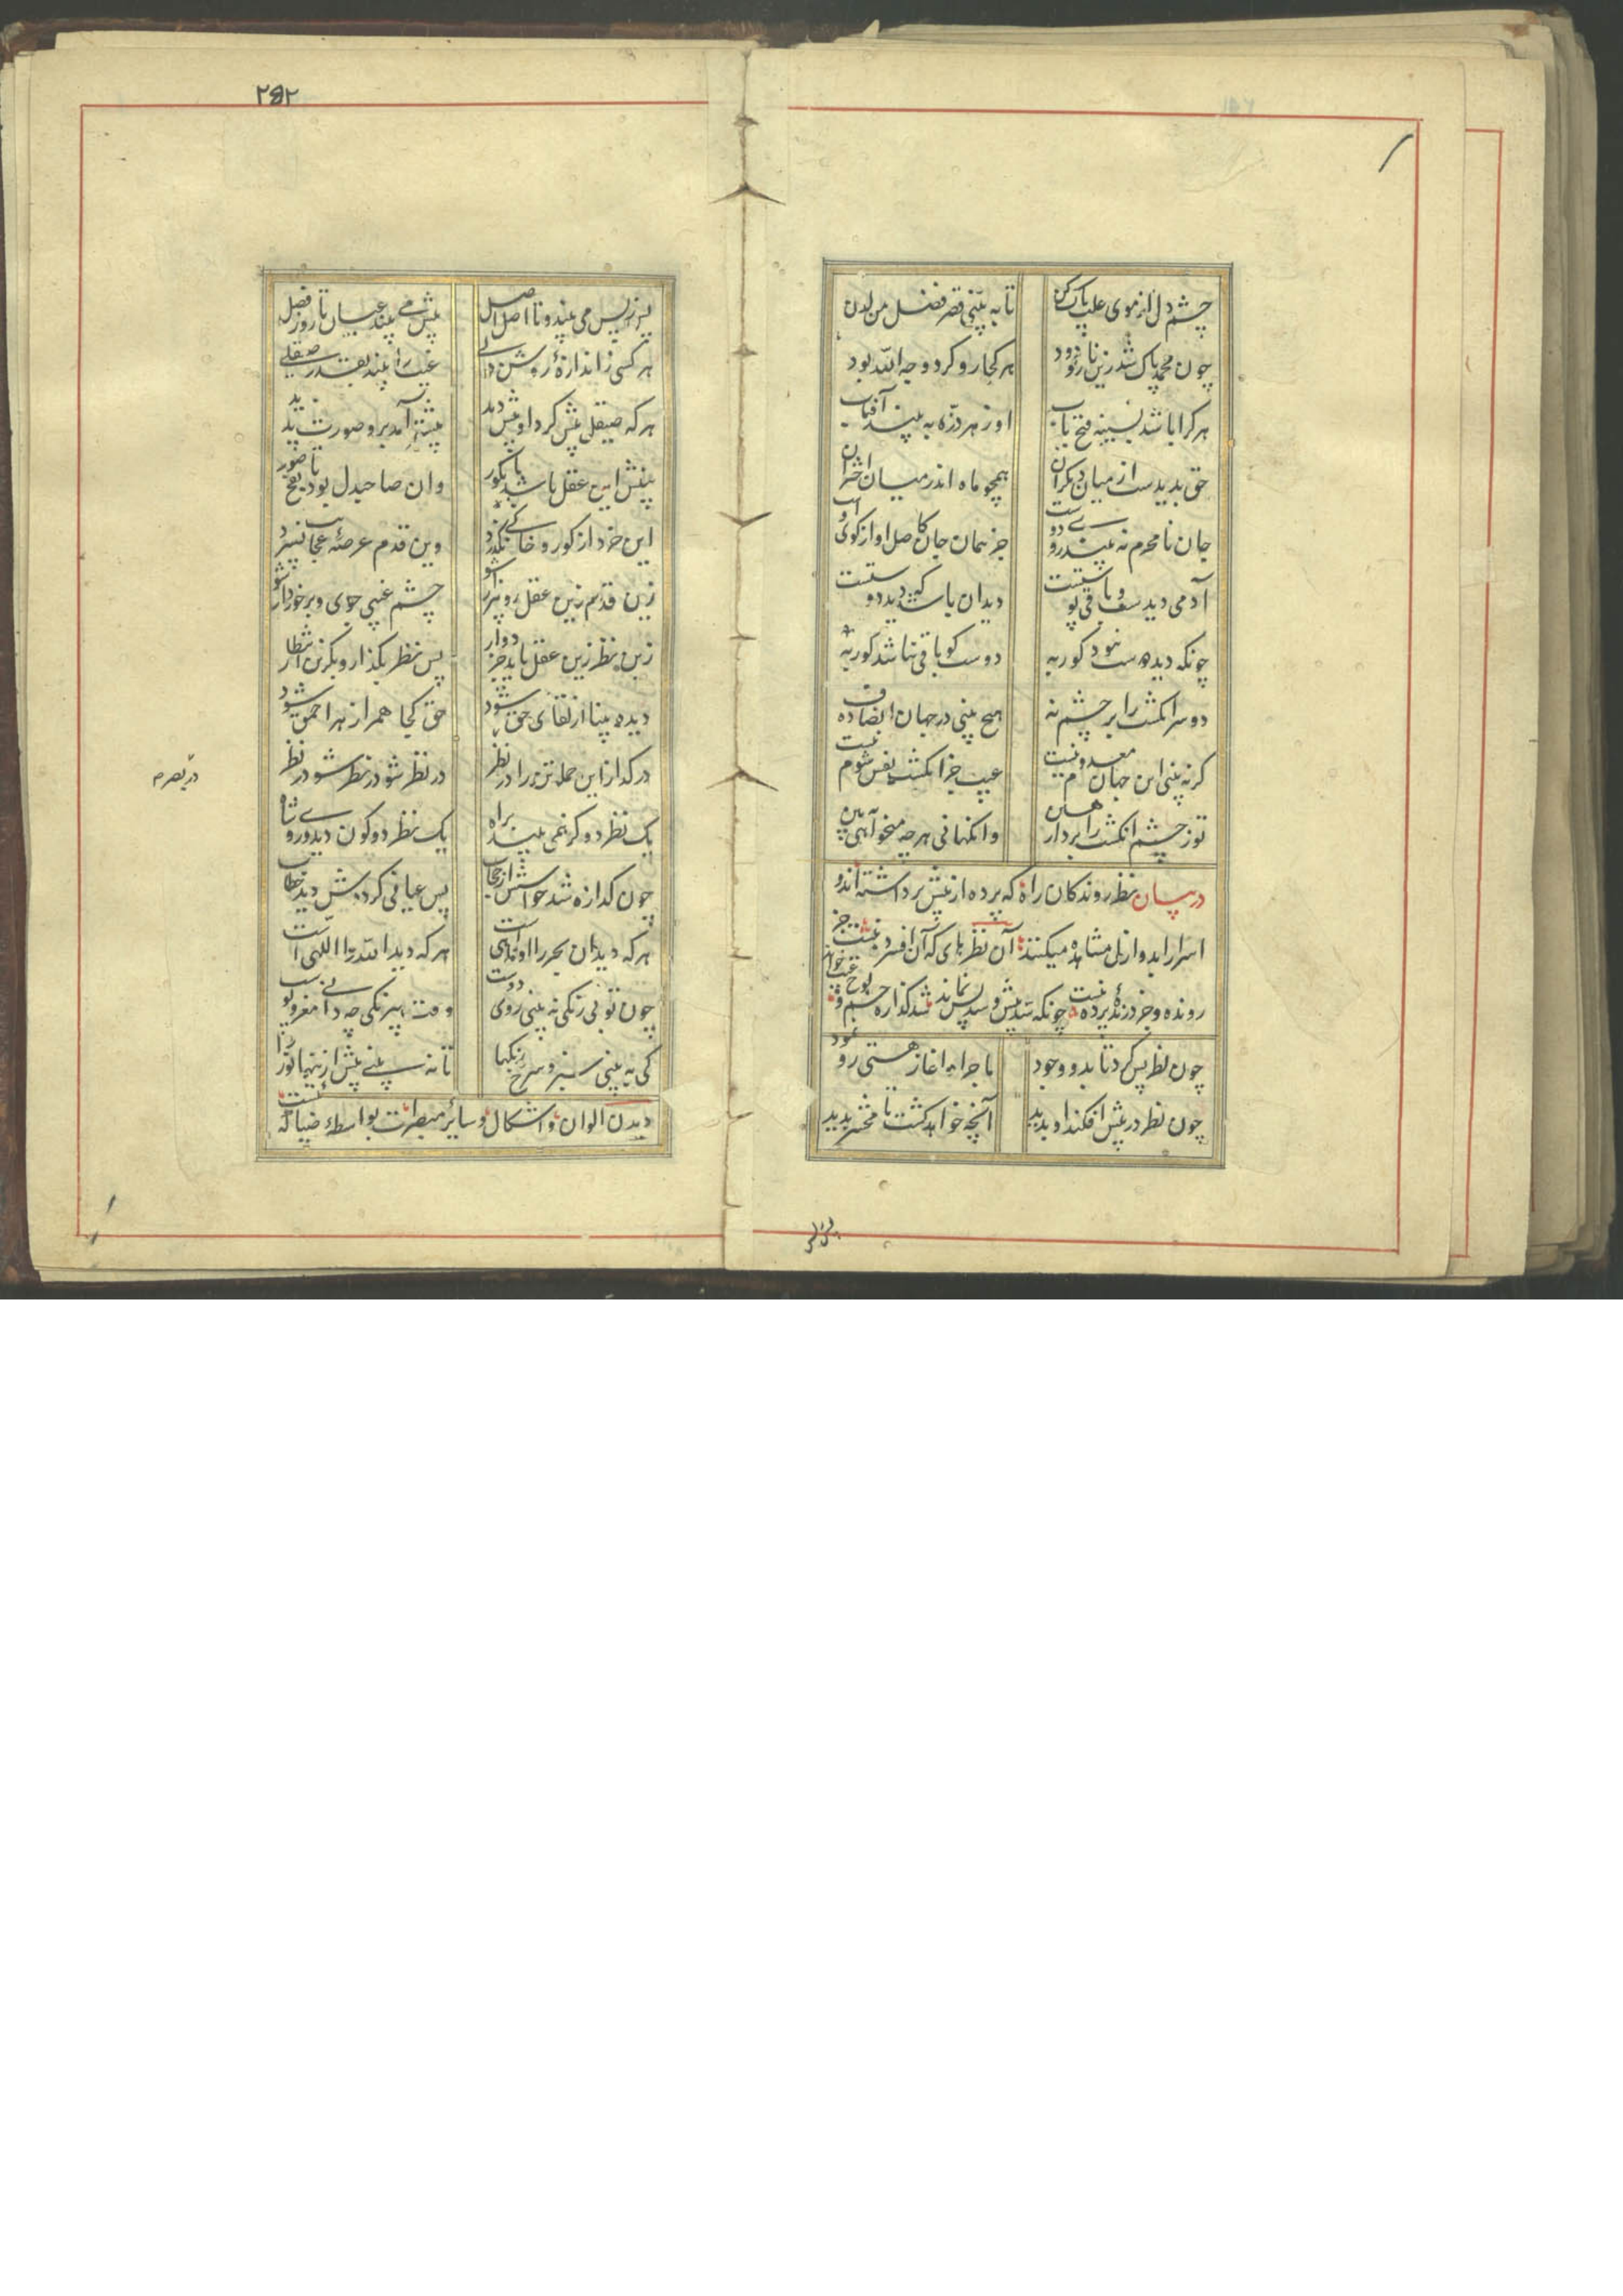 چشم دل از موی علت پاک کن تا به بینی قصر فضل من لدن
چون محمد پاک شد زین نار و دود هر کجا رو کرد وجه الله بود
هر کرا باشد ز سینه فتح باب او ز هر ذره به بیند آفتاب
حق بدیدست از میان دیگران همچو ماه اندر میان اختران
جان نامحرم نه بیند روی دوست جز همان جان کاصل او از کوی اوست
آدمی دیدست و باقی پوستست دید آن باشد که دید دوستست
چونکه دید دوست نبود کور به دوست کو باقی نباشد کور به
دو سر انکشت را بر چشم نه هیچ بینی در جهان انصاف ده
کر نه بینی این جهان معدوم نیست عیب جز انکشت نفس شوم نیست
تو ز چشم انکشت را بردار هین وانکهانی هر چه میخواهی بین
در بیان نظر روندکان راه که پرده از پیش برداشته اند و
اسرار ابد و ازل مشاهده میکنند آن نظرهای که آن افسرده نیست جز
رونده و جز درنده پرده نیست چونکه سد پیش و سد پس نماند شد کذاره چشم و لوح غیب خواند
چون نظر پس کرد تا بدو وجود ماجرا و اغاز هستی رو نمود
چون نظر در پیش افکند او بدید آنچه خواهد کشت تا محشر پدید
پس ز پس
۲۶۲
پس ز پس می بیند و تا اصل اصل پیش می بیند عیان تا روز فصل
هر کسی ز اندازهٔ روشن دلی غیب را بیند بقدر صیقلی
هر که صیقلی بیش کرد او بیش دید بیشتر آمد برو صورت پدید
بینش این عقل باشد تا بکور وان صاحبدل بود تا نفخ صور
این خرد از کور و خاکی نکذرد وین قدم عرصهٔ عجایب نسپرد
زین قدم زین عقل رو بیزار شو چشم غیبی جوی و برخوردار شو
زین نظر زین عقل ناید جز دوار پس نظر بکذار و بکزین انتظار
دیده بینا از لقای حق شود حق کجا همراز هر احمق شود
درکداز این جمله تن را در نظر در نظر شو در نظر شو در نظر
در بصر م
یک نظر دو کز نمی بیند براه یک نظر دو کون دید و روی شاه
چون کدازه شد حواسش از حجاب پس عیانی کرددش دید خطاب
هر که دید آن بحر را او ماهی است هر که دید الله را اللهی است
چون تو بی رنکی نه بینی روی دوست وقت بیرنکی چه دانی مغز و پوست
کی به بینی سبز و سرخ رنکها تا نه بینی پیش ازینها نور را
دیدن الوان و اشکال و سایر مبصرات بواسطهٔ ضیاییست که